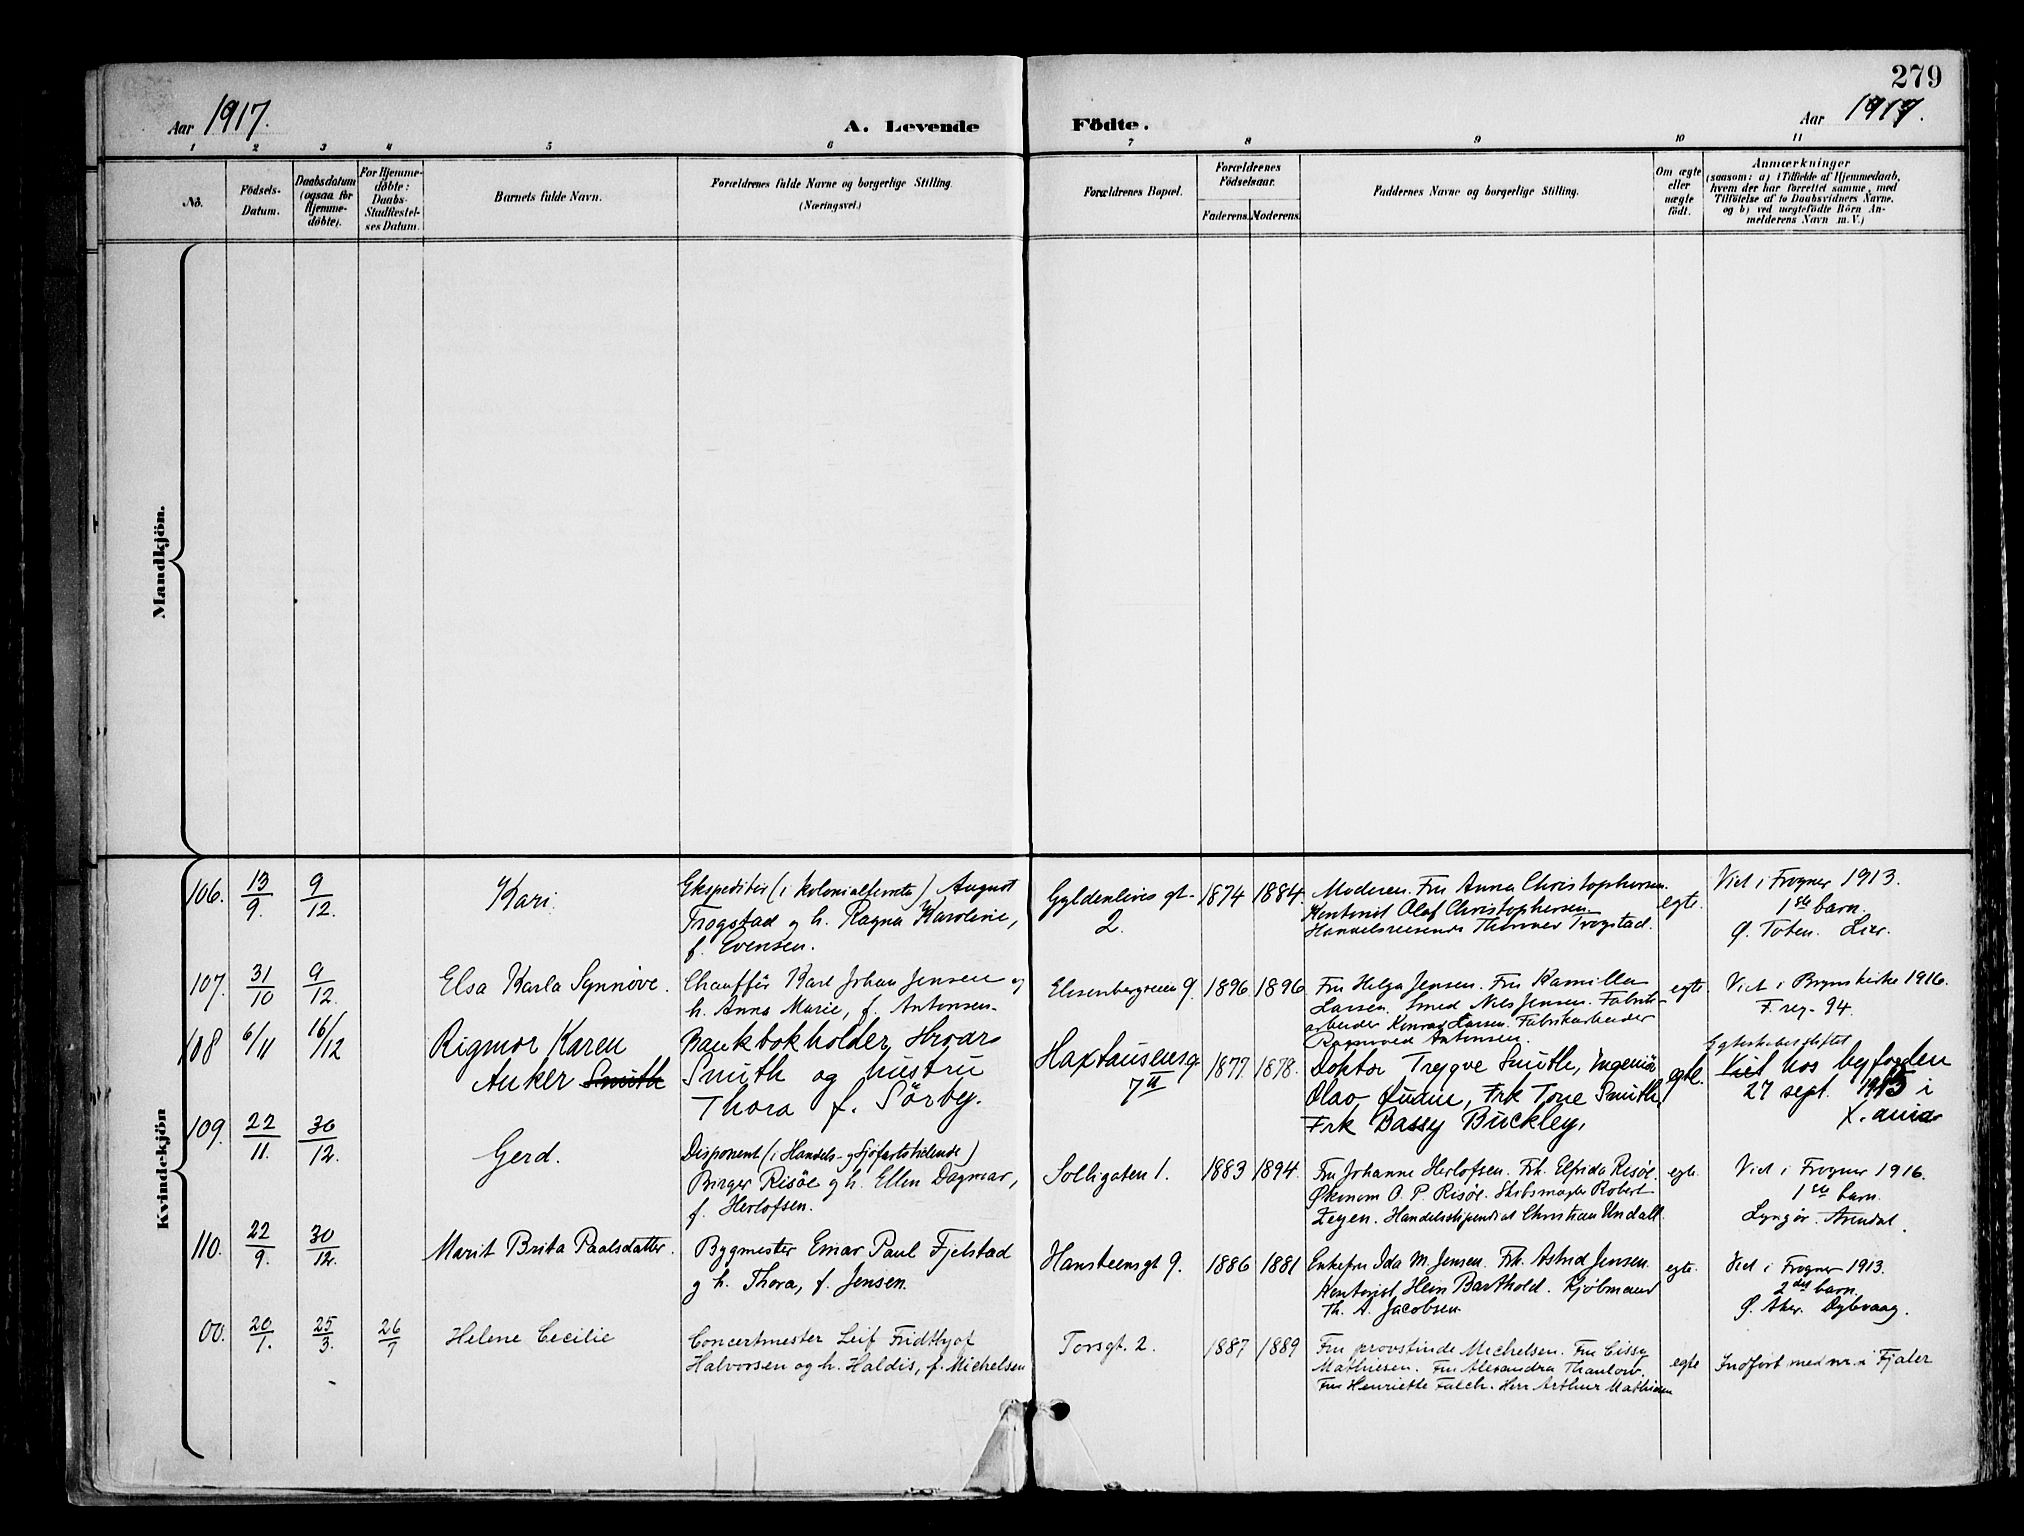 279
Aar 1917.
A. Levende Födte.
Aar 1917.
1 2 3 4 5 6 7 8 9 10 11
No.
Födsels-Datum.
Daabsdatum (ogsaa for Hjemme-döbte).
For Hjemme-döbte: Daabs-Stadfæstel-ses Datum.
Barnets fulde Navn.
Forældrenes fulde Navne og borgerlige Stilling.
(Næringsvei.)
Forældrenes Bopæl.
Forældrenes Födselsaar.
Faderens. Moderens.
Faddernes Navne og borgerlige Stilling.
Om ægte eller uægte födt.
Anmærkninger
(saasom: a) i Tilfælde af Hjemmedaab,
hvem der har forrettet samme, med
Tilföielse af to Daabsvidners Navne,
og b) ved uægtefödte Börn An-
melderens Navn m. V.)
Mandkjön.
Kvindekjön
106. 13/9. 9/12. Kari.
Ekspeditör (i kolonialforretn) August
Trogstad og h. Ragna Karoline,
f. Evensen.
Gyldenløves gt.
2.
1874 1884.
Moderen. Fru Anna Christophersen.
Kontorist Olaf Christophersen
Handelsreisende Thorvar Trogstad.
egte.
Viet i Frogner 1913.
1ste barn.
Ø. Toten. Lier.
107. 31/10 9/12. Elsa Karla Synnøve.
Chauffør Karl Johan Jensen og
h. Anna Marie, f. Antonsen.
Elisenbergveien 9. 1896 1896
Fru Helga Jensen. Fru Kamilla
Larsen. Smed Nils Jensen. Fabrik-
arbeider Konrad Larsen. Fabrikarbeider
Ragnvald Antonsen.
egte
Viet i Bryns kirke 1916.
F. reg. 94.
108 6/11 16/12 Rigmor Karen
Anker Smith
Bankbokholder Hroar
Smith og hustru
Thora f. Sörby.
Haxtausensg.
7 II
1877. 1878.
Doktor Trygve Smith, Ingeniør
Olav Quam, Frk Tone Smith,
Frk Bassy Buckley,
egte.
Egteskabet stiftet
Viet hos byfogden
27 sept. 1913 i
X.ania
109. 22/11. 30/12. Gerd.
Disponent (i Handels- og Sjöfartstidende)
Birger Risöe og h. Ellen Dagmar,
f. Herlofsen.
Solligaten 1. 1883 1894.
Fru Johanne Herlofsen. Frk. Elfrida Risöe.
Økonom O. P. Risöe. Skibsmægler Robert
Zeyen. Handelsstipendiat Christian Undall.
egte
Viet i Frogner 1916.
1ste barn.
Lyngör. Arendal.
110. 22/9. 30/12. Marit Brita Paalsdatter.
Bygmester Einar Paul Fjelstad
og h. Thora, f. Jensen.
Hansteensgt 9. 1886 1881
Enkefru Ida M. Jensen. Frk. Astrid Jensen.
Kontorist Hein Barthold. Kjøbmand
Th. A. Jacobsen
egte.
Viet i Frogner 1913.
2det barn.
Ø. Aker. Dybvaag.
00. 20/1. 25/3. 26/7 Helene Cecilie
Concertmester Leif Fridthjof
Halvorsen og h. Haldis, f. Michelsen
Torsgt. 2. 1887 1889
Fru provstinde Michelsen. Fru Cissy
Mathiesen. Fru Alexandra Thaulow.
Fru Henriette Falch. Herr Arthur Mathiesen
egte
Indført med nr. i Fjaler